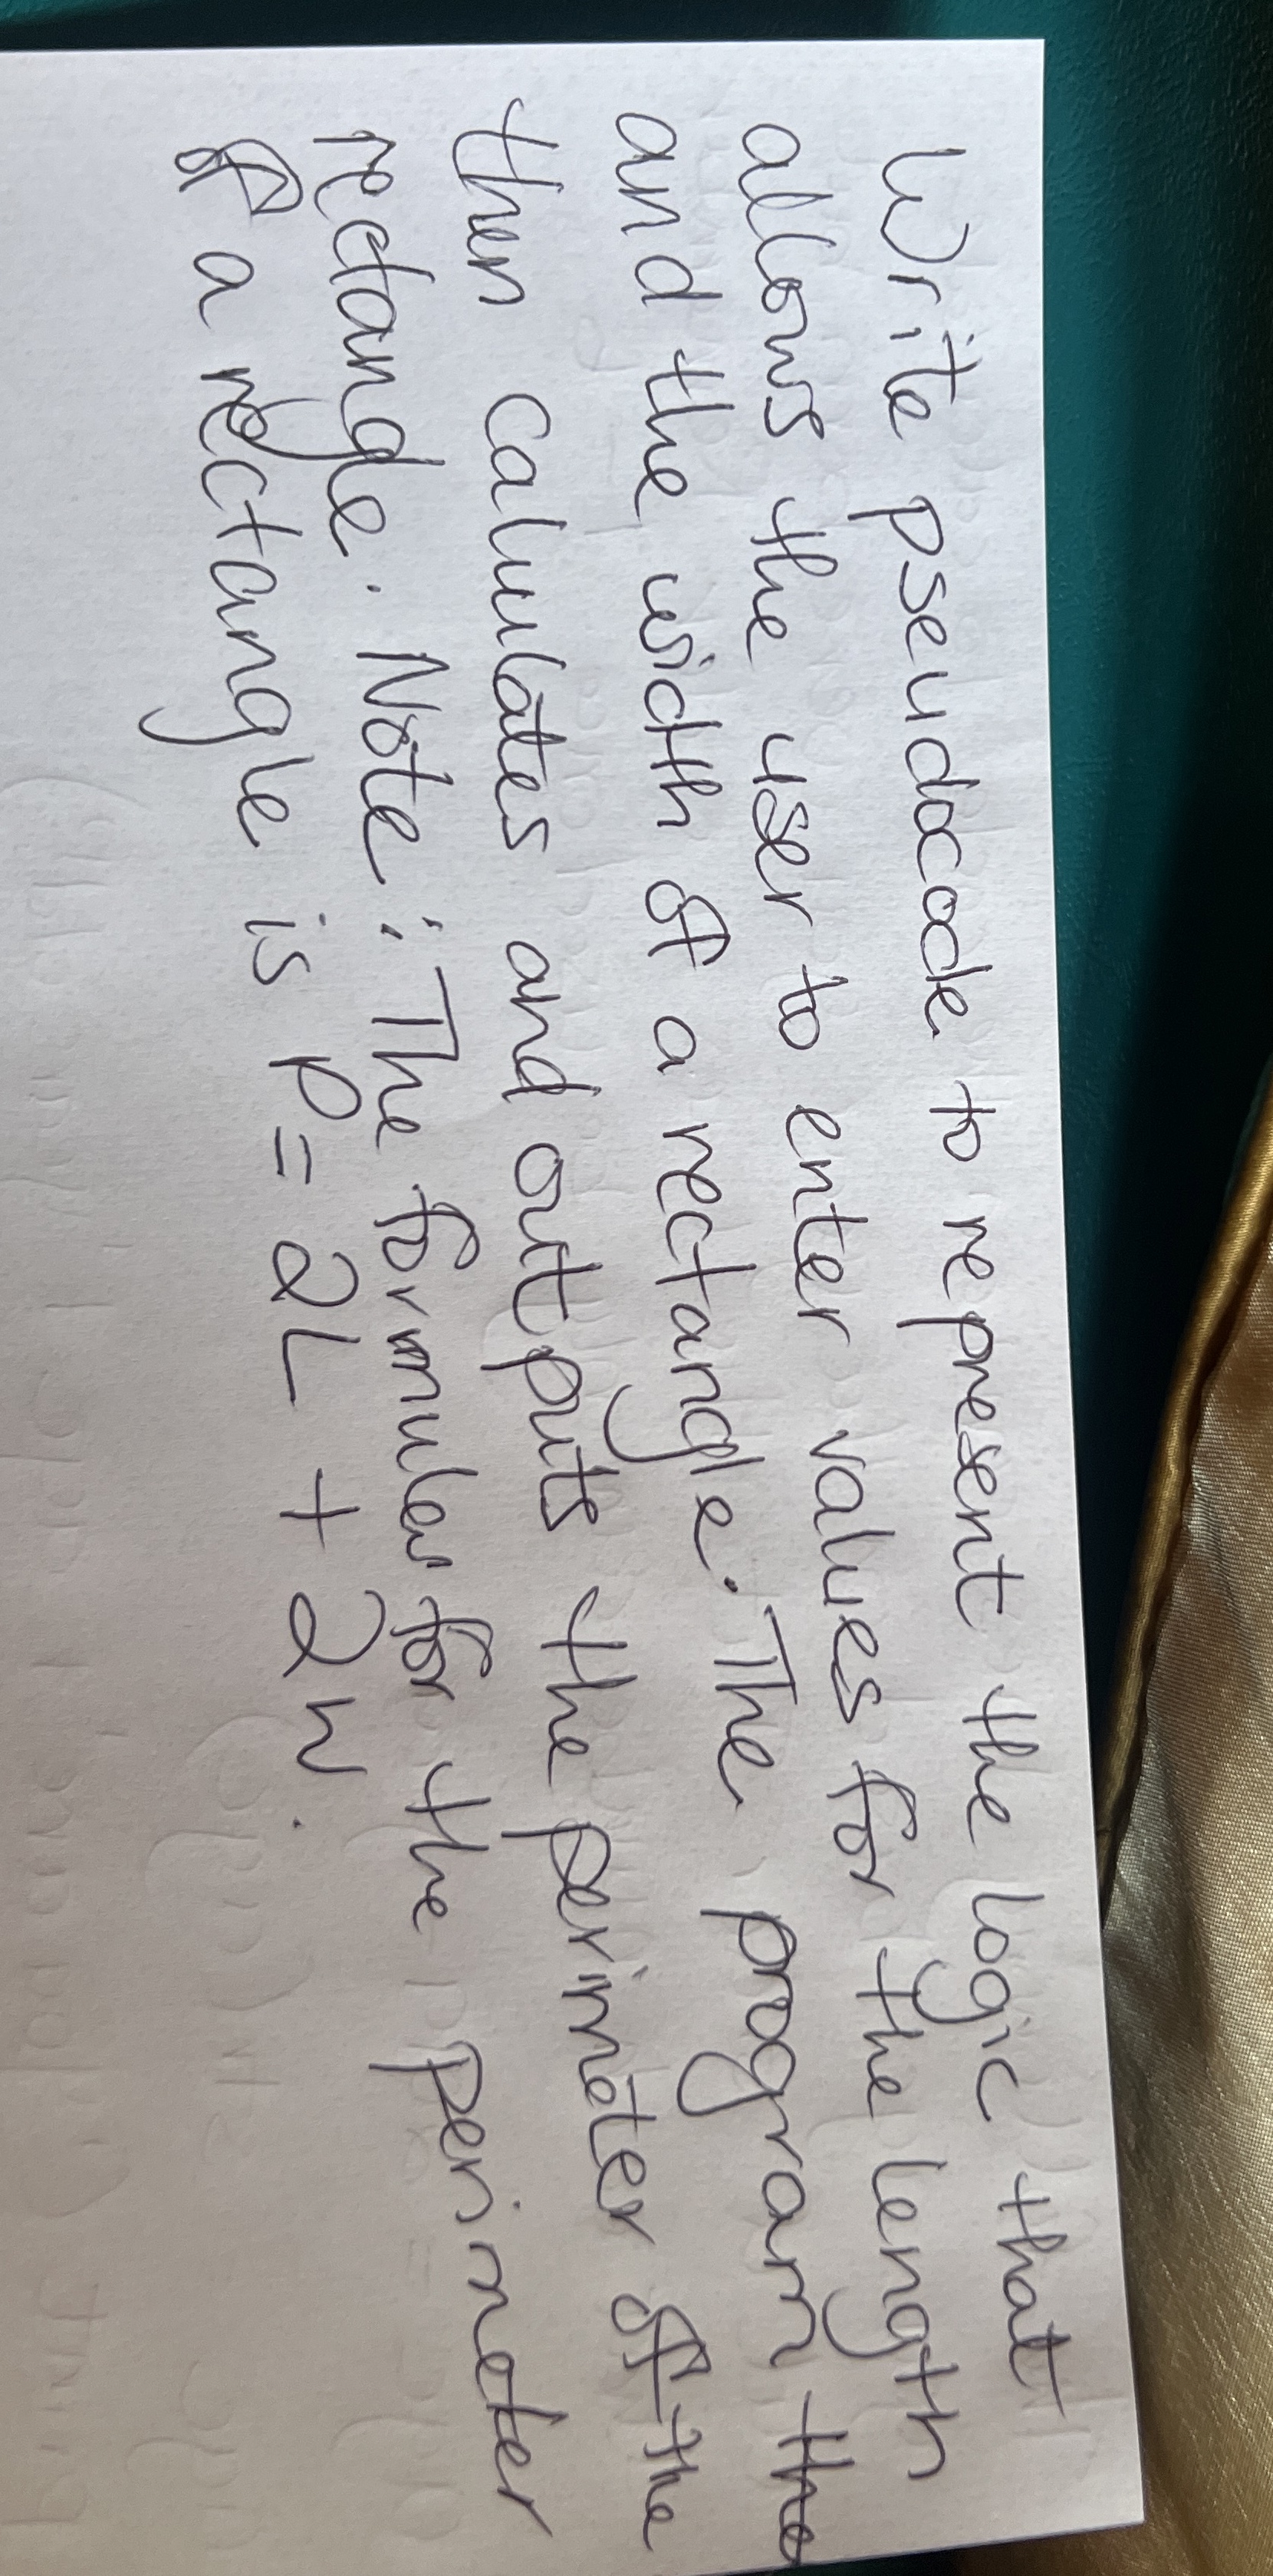 Write pseudocode to represent the logic that
allows the user to enter values for the length
and the width of a rectangle. The program the
then calculates and outputs the perimeter of the
rectangle. Note: The formula for the perimeter
of a rectangle is P = 2L + 2W.